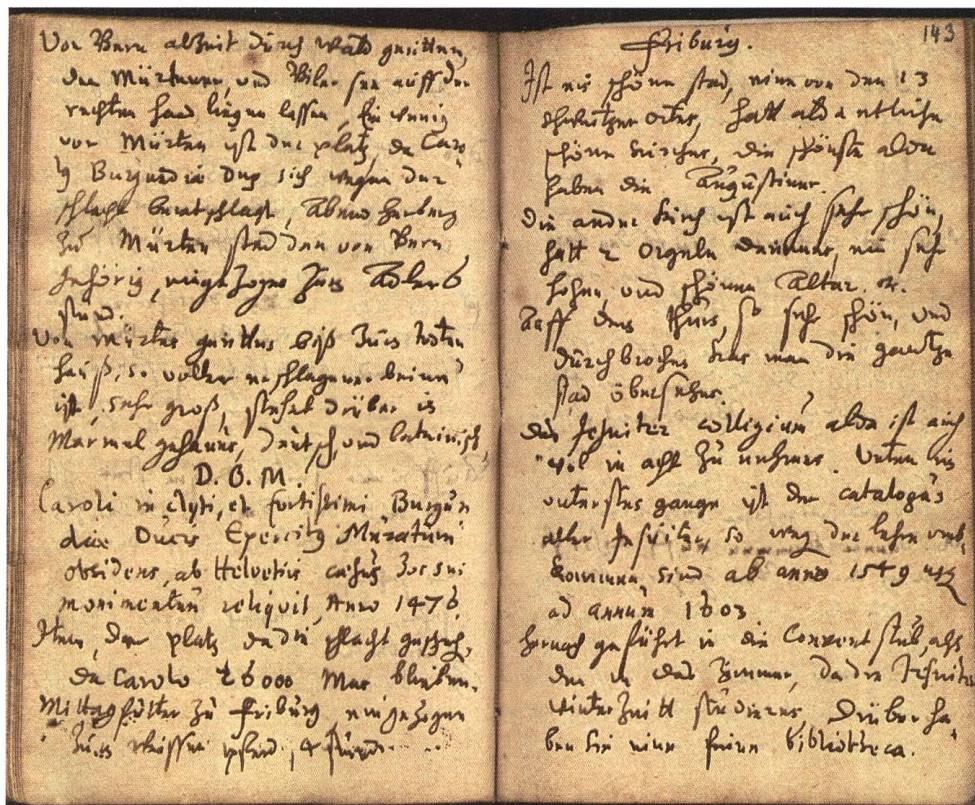 Von Bern allzeit durch wald geritten,
den Murtener, und Bieler see auff der
rechten hand ligen lassen, Ein wenig
vor Mürten ist der platz, da Caro
Burgundiæ Dux sich wegen der
schlacht berathschlagt, Abend herberg
zu Mürten stad den von Bern
gehörig, eingezogen zum Adler 6
stund.
Von Mürten geritten biß zum todten
hauß, so voller erschlagener beinen
ist, sehr groß, stehet drüber in
Marmel gehauen, deutsch, und lateinisch,
D. O. M.
Caroli inclyti, et fortissimi Burgun
diæ Ducis Exercitus Muratum
obsidens, ab Helvetiis cæsus hoc sui
monimentum reliquit, Anno 1476
Item, der platz da die schlacht geschehen,
da Carolo 26000 Man blieben.
Mittagfutter zu Friburg, eingezogen
zum weissen pferd, 4 stund
143
Friburg.
Ist ein schöne stad, eine von den 13
schweitzer orten, hatt alda etliche
schöne kirchen, die schönste alda
haben die Augustiner.
Die ander kirch ist auch sehr schön,
hatt 2 Orgeln darinnen, ein sehr
hohen, und schönen Altar. etc.
Auff dem thurn, so sehr schön, und
durchbrochen kan man die gantze
stad übersehen.
Das Jesuiter collegium alda ist auch
wol in acht zu nehmen. Unten im
untersten gange ist der catalogus
aller Jesuiter, so weg der lehr umb
kommen, sind ab anno 1549 usq
ad annum 1603
hernach geführt in die Convent stub, als
den in das Zimmer, da die Jesuiter
winterzeitt studieren, Drüber ha
ben sie eine feine bibliotheca.